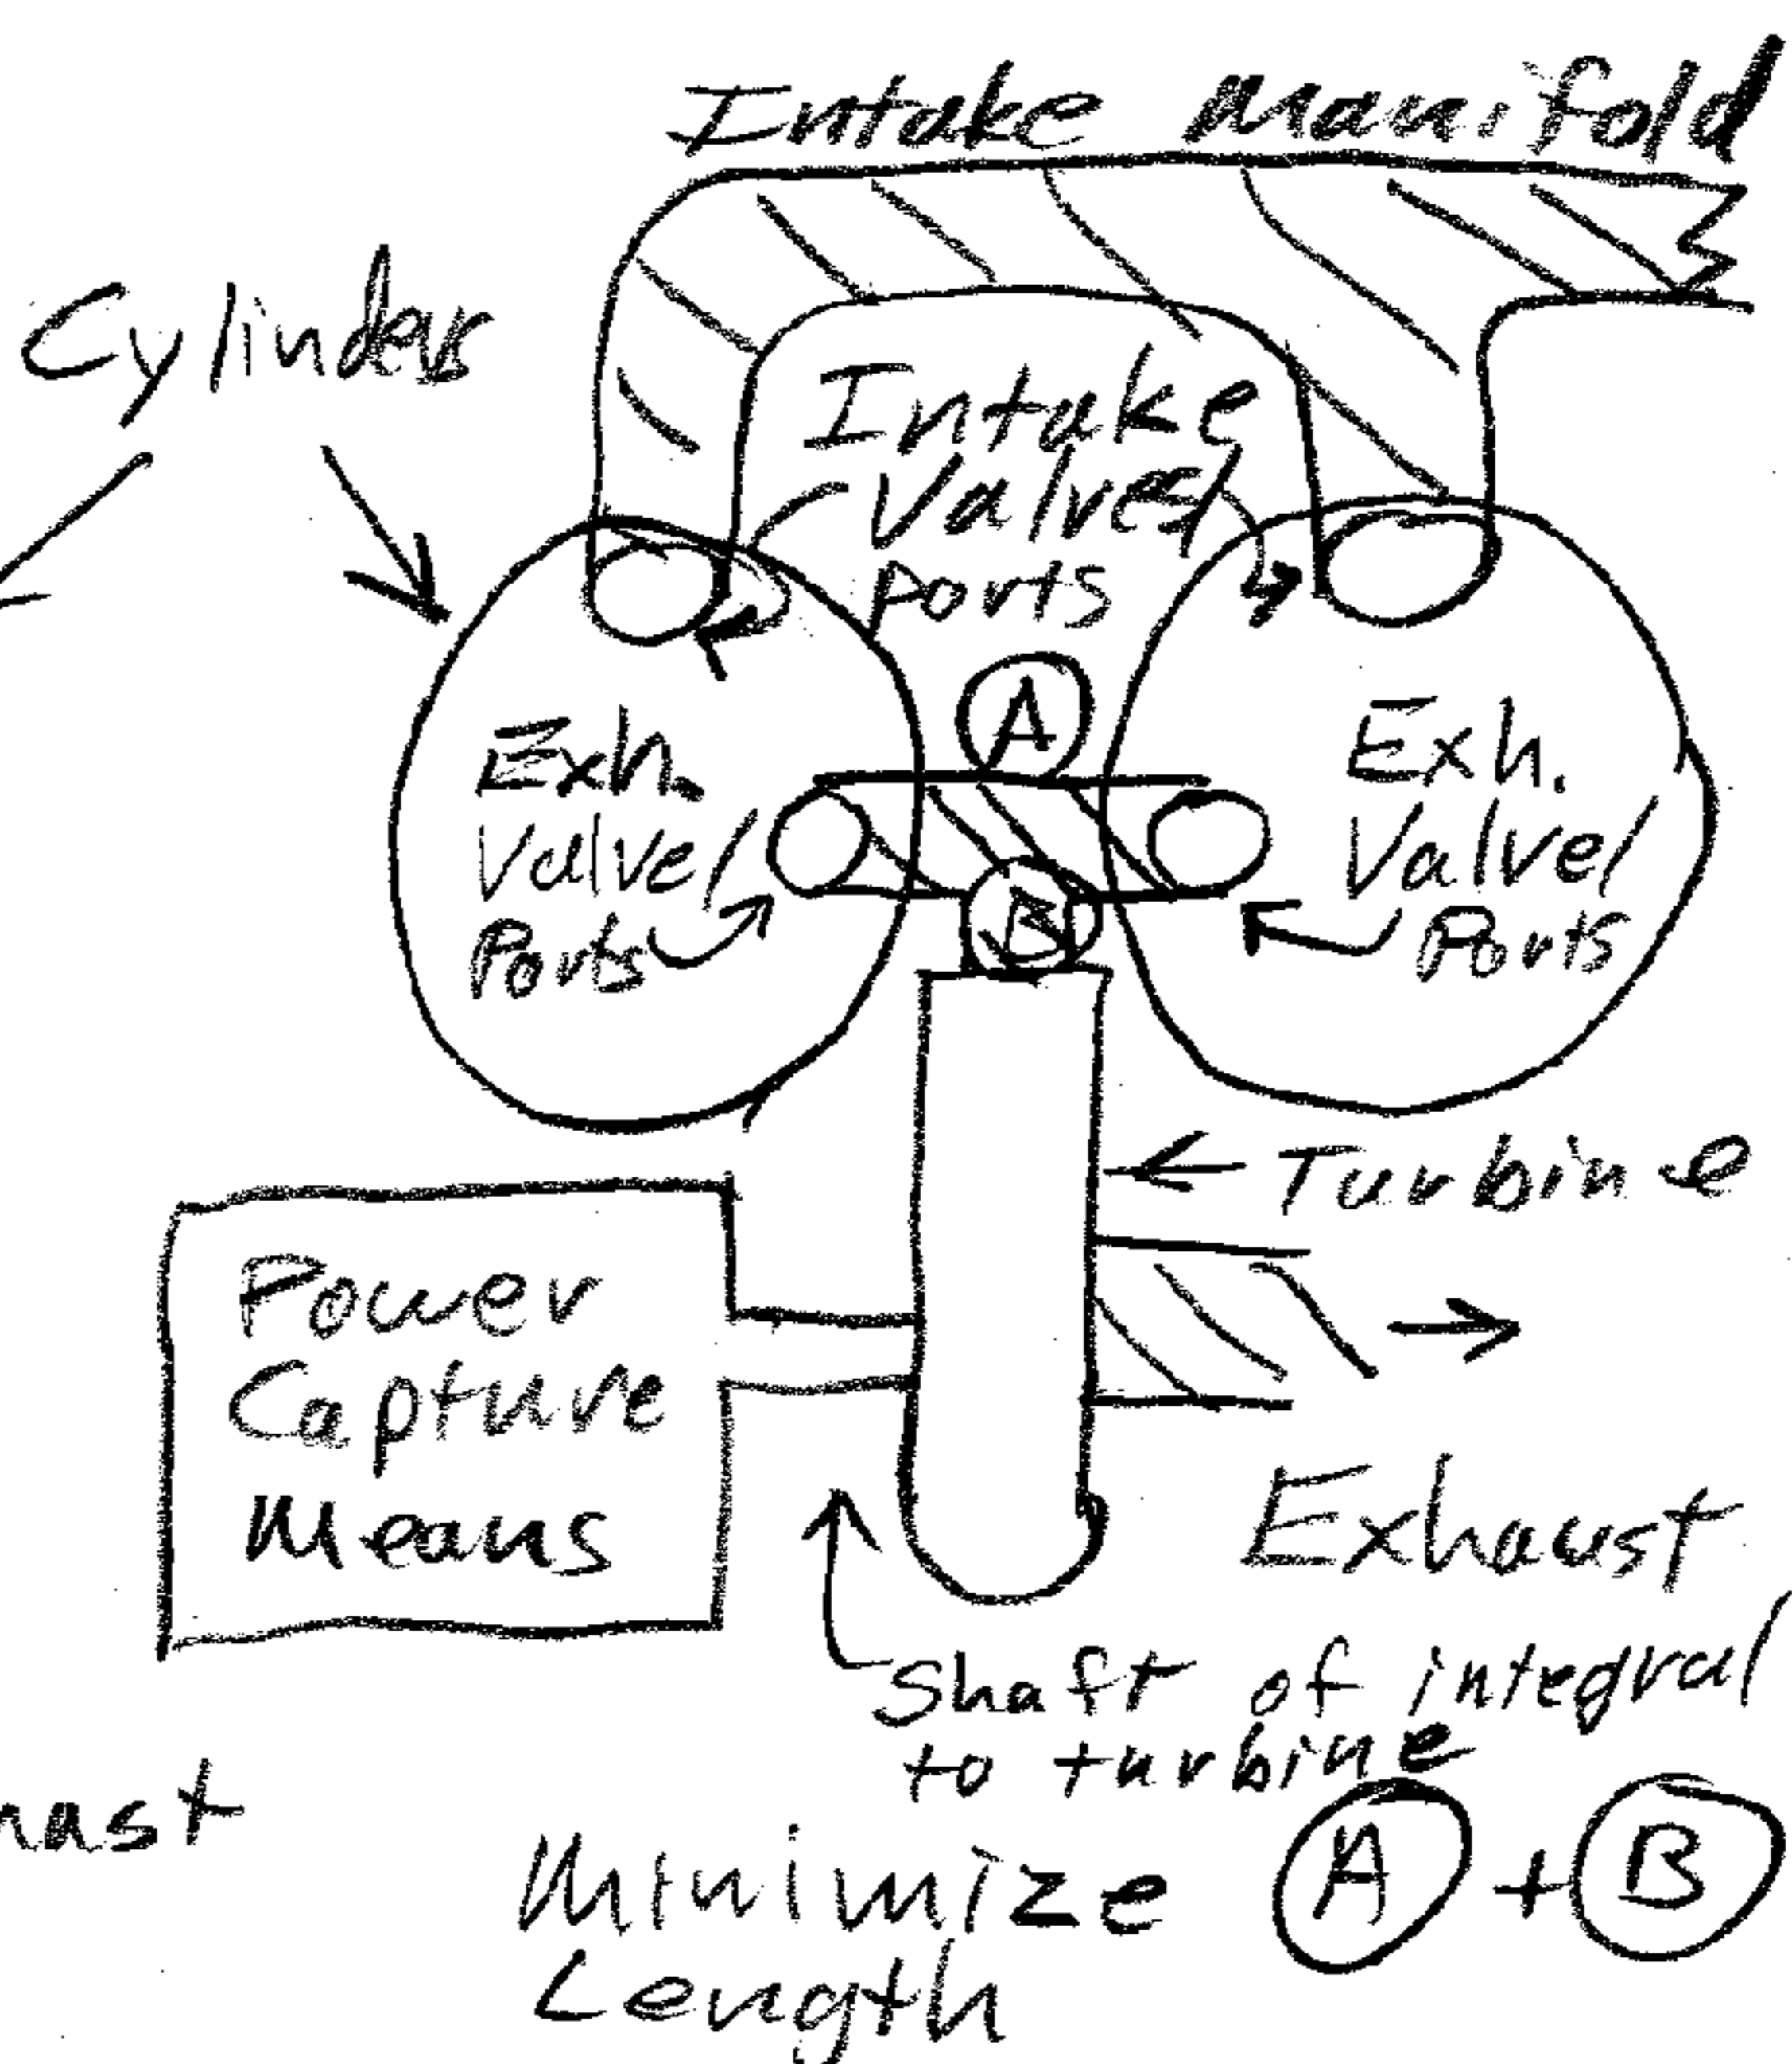 Intake Manifold
Cylinders
Intake
Valve/
Ports
A
Exh.
Valve/
Ports
Exh.
Valve/
Ports
B
Turbine
Power
Capture
Means
Exhaust
Shaft of integral
to turbine
Minimize A + B
Length